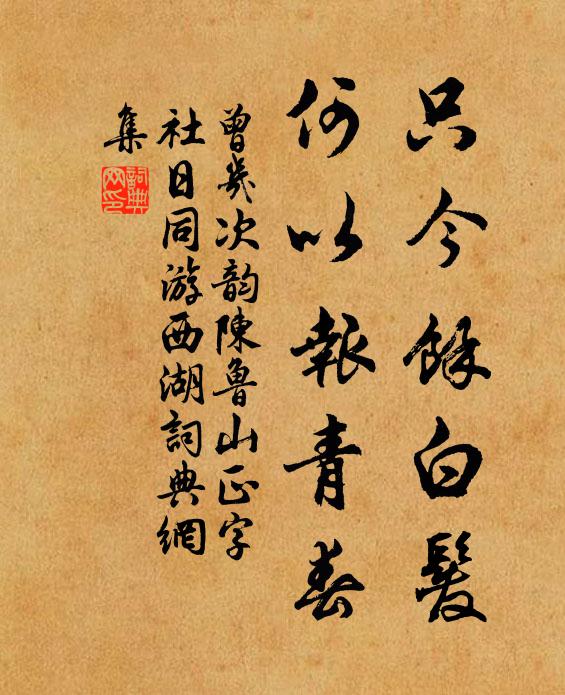 只今餘白髮
何以報青春
曾幾次韵陳魯山正字
社日同游西湖詞典網
集
詞典網印